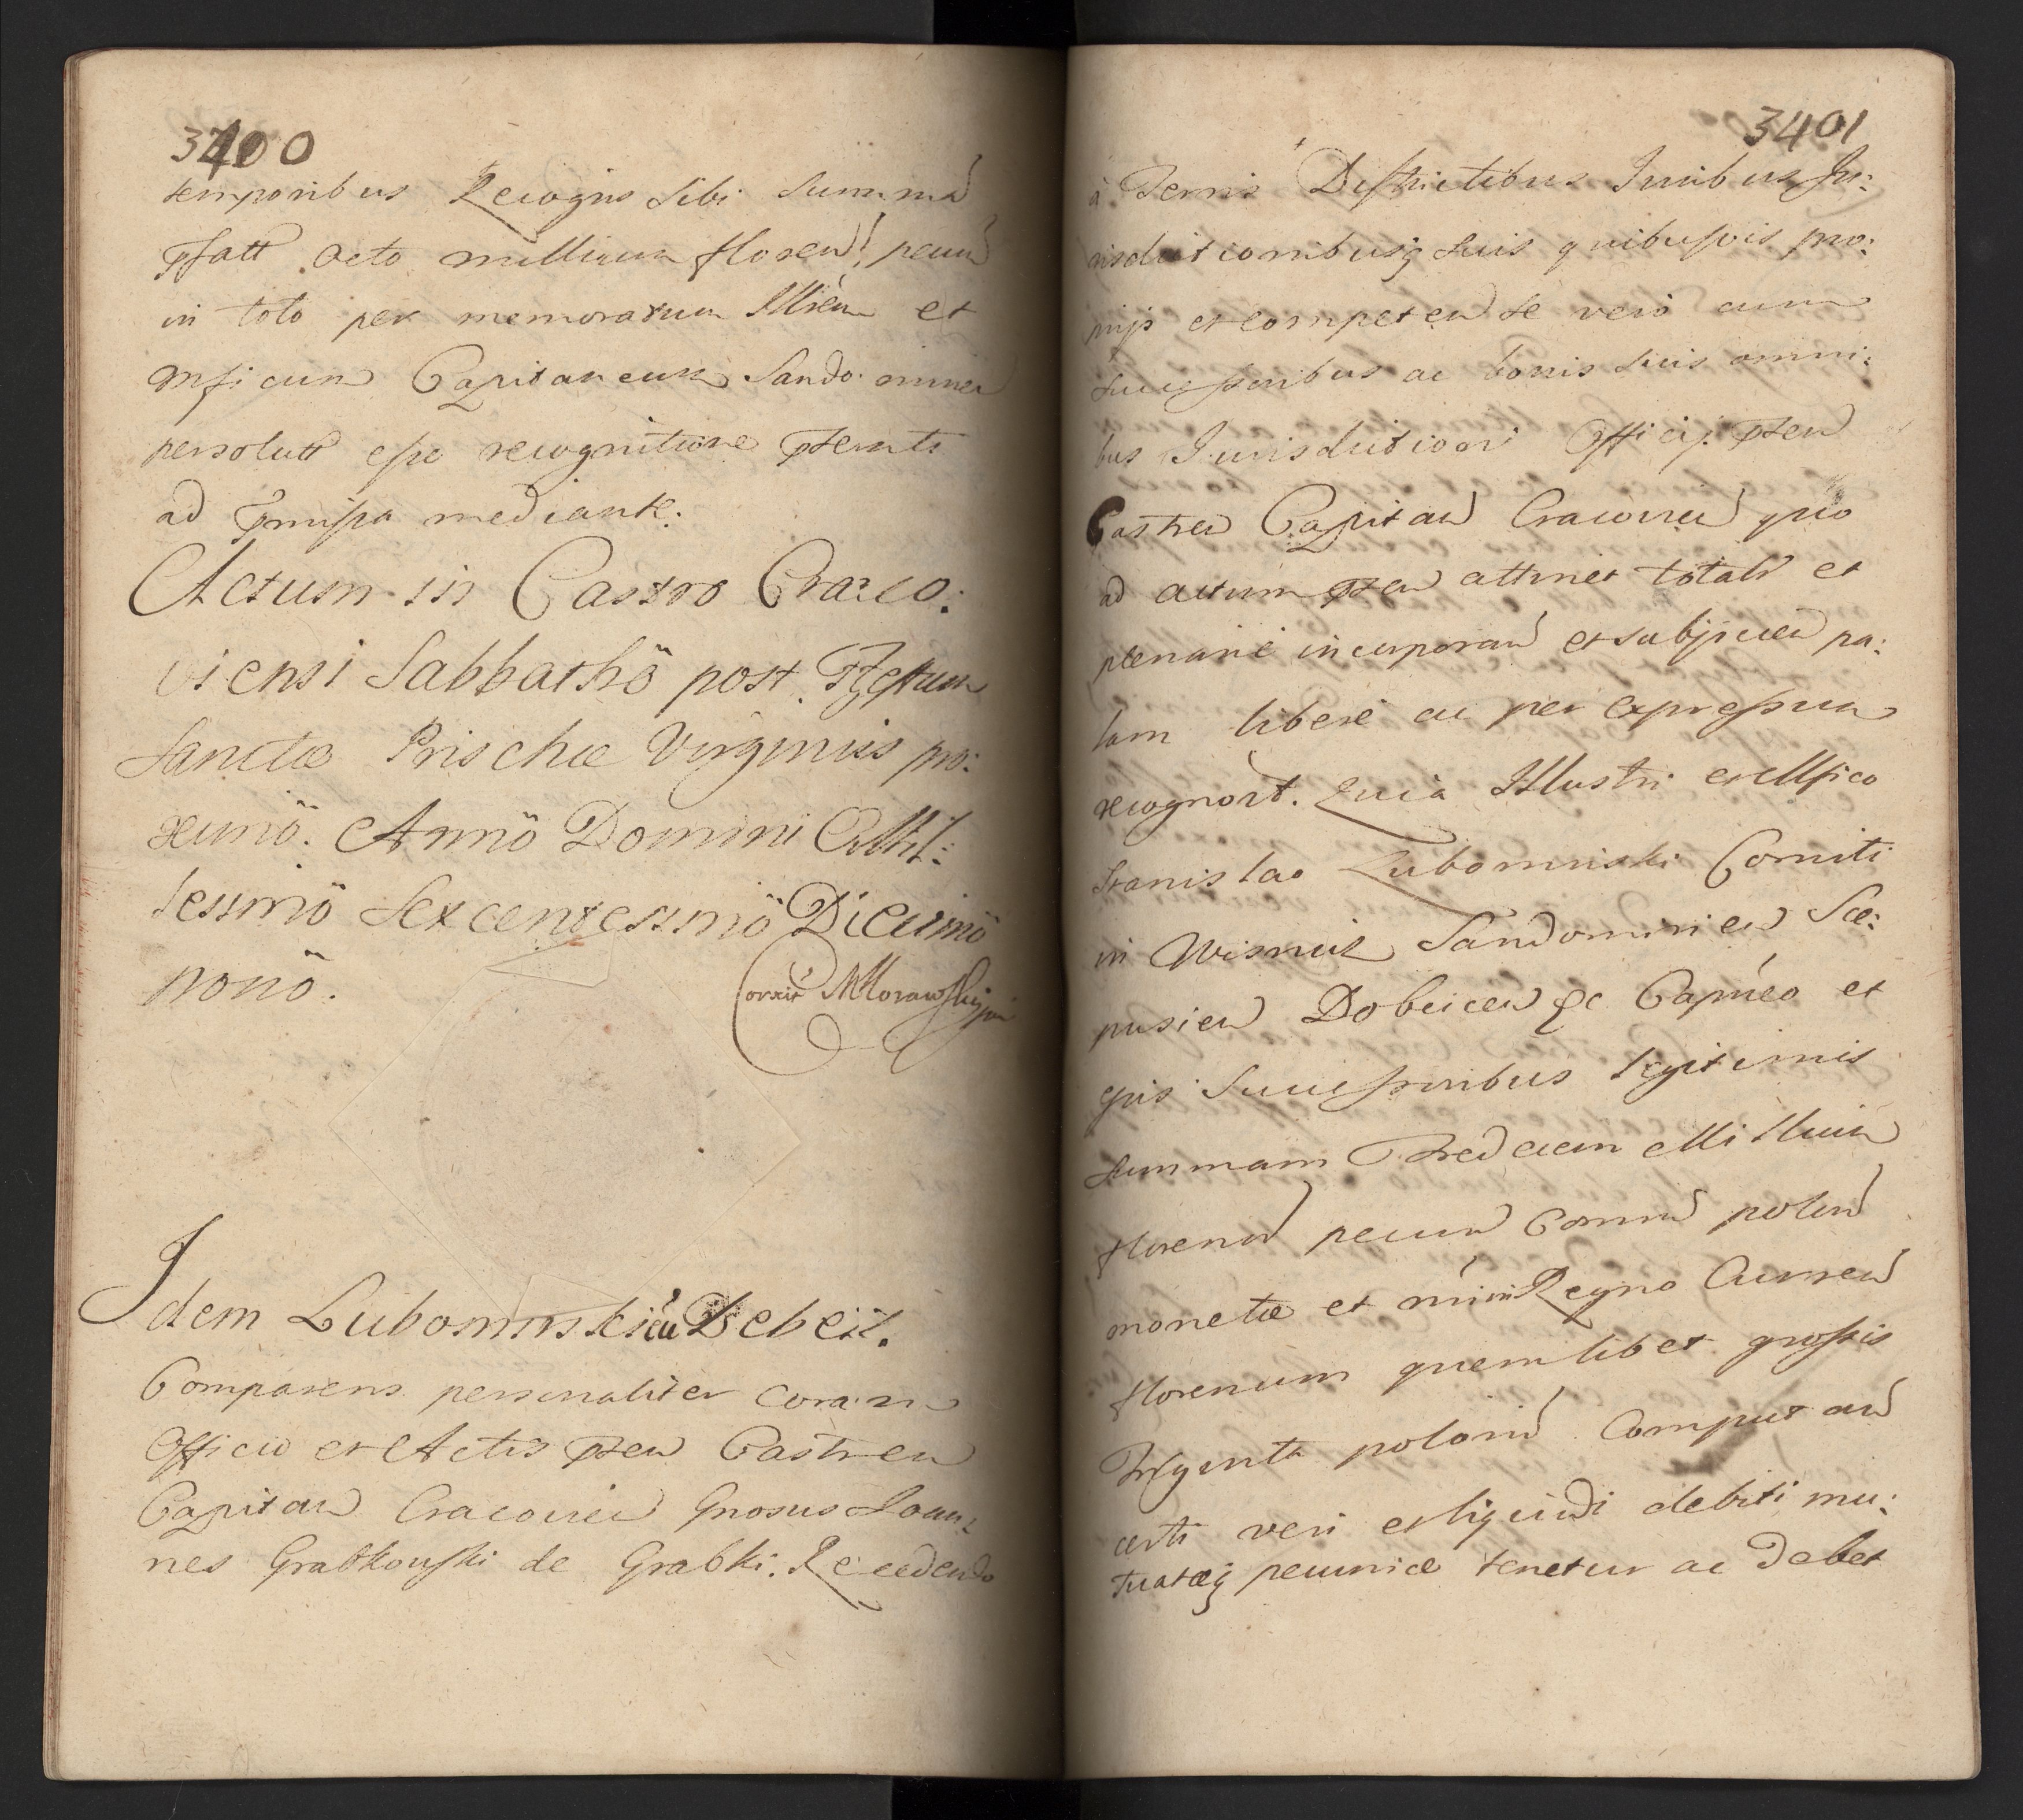 3400
temporibus Recogno Sibi Summā
Pfatt Octo millium floren: pecun
in toto per memoratum Illrem et
Mficum Capitaneum Sandomirien
persolutt esse recognitione Pterenti
ad Pmissa mediante.
Actum in Castro Craco:
viensi Sabbathô post Festum
Sanctæ Prischæ Virginis pro:
ximô. Annô Domini Mil:
lessimô Sexcentessimô Decimô
nonô.
Corrxit Morawski
Idem Lubomirskieu Debeit.
Comparens personaliter coram
Officio et Actis Pten Castren
Capitan Cracovien Gnosus Joan:
nes Grabkowski de Grabki. Recedendo
3401
à Terris Districtibus Iuribus Iu:
risdictionibusq suis quibusvis pro:
prijs et competen se vero cum
Successoribus ac bonis suis omni:
bus Iurisdictioni Officij Pten
Castren Capitan Cracovien quo
ad actum Pten attinet totalr et
plenarie incorporan et subjicien pa:
lam libere ac per expressum
recognovt. Quia Illustri et Mfico
Stanislao Lubomirski Comiti
in Wisnicz Sandomirien Sce:
pusien Dobcicen &c Capneo et
ejus Successoribus legitimis
Summam Tredecem Millium
floreno pecun Comun polon
monetæ et nri in Regno Curren
florenum quemlibet grossis
Triginta polonid Computan
certi veri et liquidi debiti mu:
tuatæq pecuniæ tenetur ac Debet